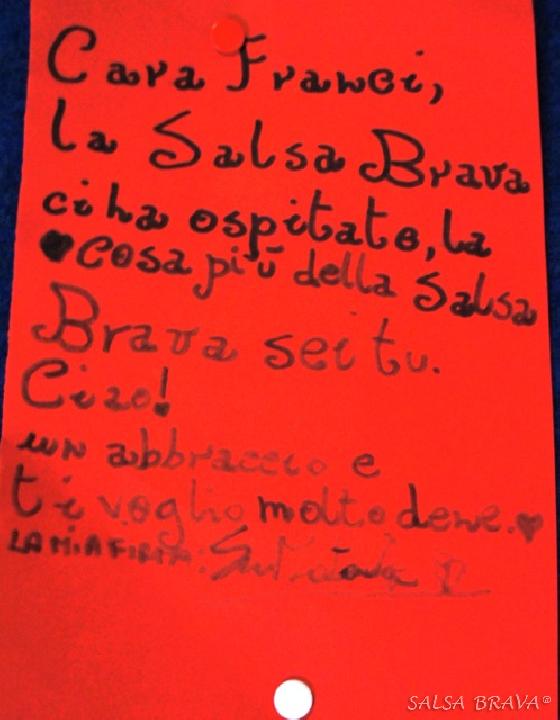 Cara Franci,
la Salsa Brava
ci ha ospitato, la
♥cosa più della Salsa
Brava sei tu.
Ciao!
un abbraccio e
ti voglio molto dene.♥
LA MIA FIRMA:
SALSA BRAVA®